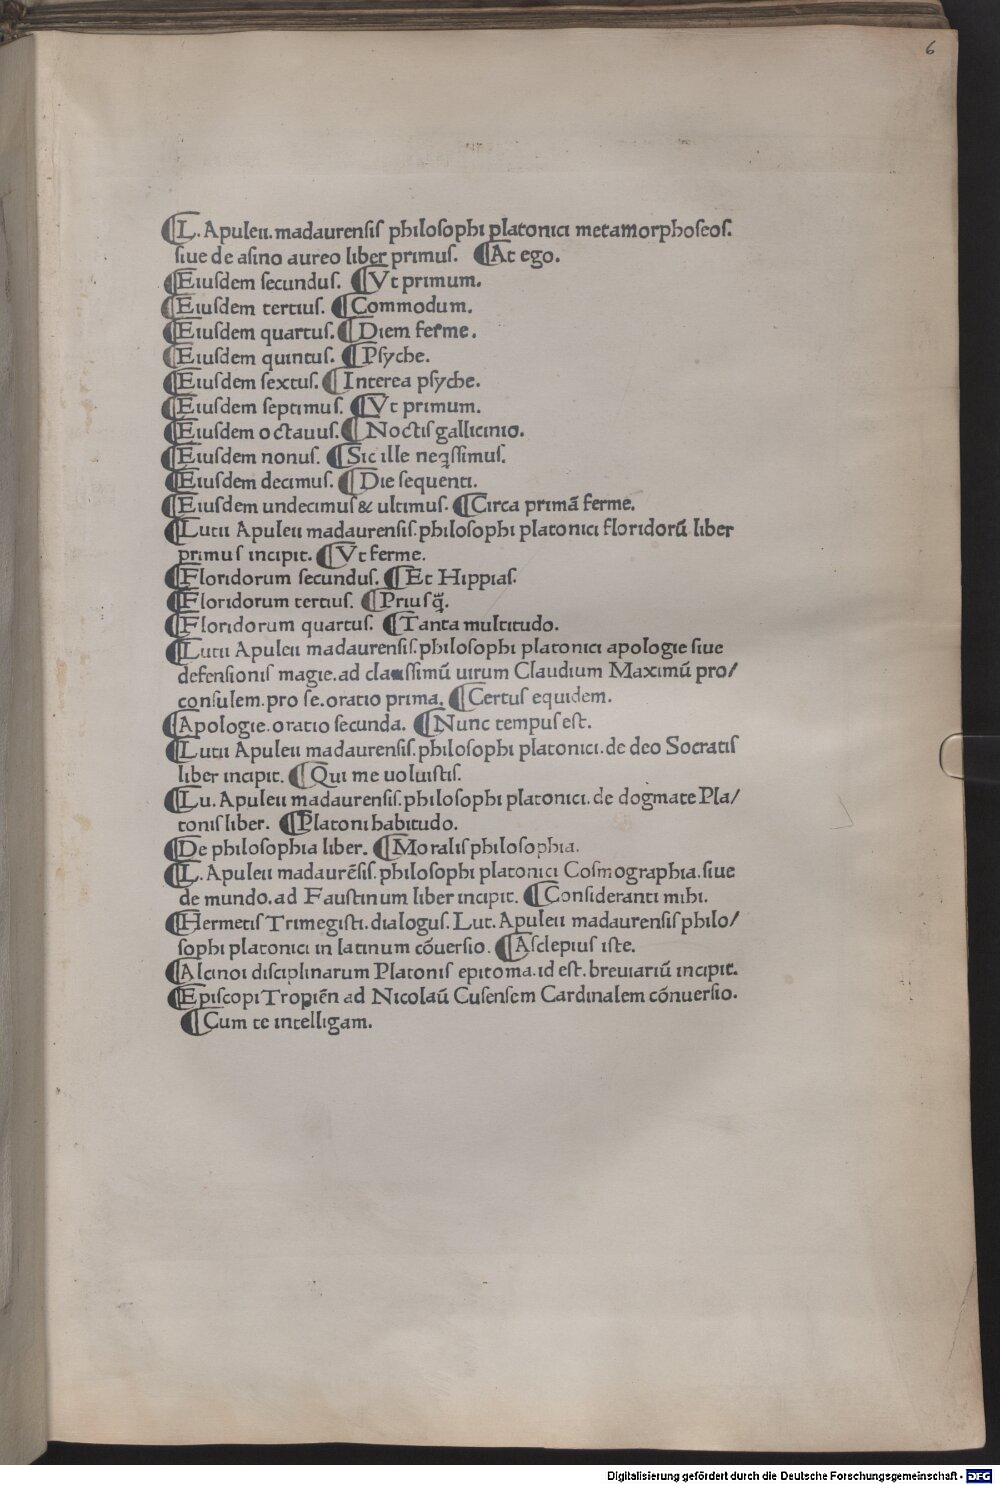 6
¶L. Apuleii. madaurensis philosophi platonici metamorphoseos.
siue de asino aureo liber primus. ¶At ego.
¶Eiusdem secundus. ¶Vt primum.
¶Eiusdem tertius. ¶Commodum.
¶Eiusdem quartus. ¶Diem ferme.
¶Eiusdem quintus. ¶Psyche.
¶Eiusdem sextus. ¶Interea psyche.
¶Eiusdem septimus. ¶Vt primum.
¶Eiusdem octauus. ¶Noctis gallicinio.
¶Eiusdem nonus. ¶Sic ille neq̃ssimus.
¶Eiusdem decimus. ¶Die sequenti.
¶Eiusdem undecimus & ultimus. ¶Circa primã ferme.
¶Lutii Apuleii madaurensis. philosophi platonici floridorũ liber
primus incipit. ¶Vt ferme.
¶Floridorum secundus. ¶Et Hippias.
¶Floridorum tertius. ¶Prius q̃.
¶Floridorum quartus. ¶Tanta multitudo.
¶Lutii Apuleii madaurensis. philosophi platonici apologie siue
defensionis magie. ad clarissimũ uirum Claudium Maximũ pro/
consulem. pro se. oratio prima. ¶Certus equidem.
¶Apologie. oratio secunda. ¶Nunc tempus est.
¶Lutii Apuleii madaurensis. philosophi platonici. de deo Socratis
liber incipit. ¶Qui me uoluistis.
¶Lu. Apuleii madaurensis. philosophi platonici. de dogmate Pla/
tonis liber. ¶Platoni habitudo.
¶De philosophia liber. ¶Moralis philosophia.
¶L. Apuleii madaurẽsis. philosophi platonici Cosmographia. siue
de mundo. ad Faustinum liber incipit. ¶Consideranti mihi.
¶Hermetis Trimegisti. dialogus. Lut. Apuleii madaurensis philo/
sophi platonici in latinum cõuersio. ¶Asclepius iste.
¶Alcinoi disciplinarum Platonis epitoma. id est. breuiariũ incipit.
¶Episcopi Tropiẽn ad Nicolaũ Cusensem Cardinalem cõnuersio.
¶Cum te intelligam.
Digitalisierung gefördert durch die Deutsche Forschungsgemeinschaft - DFG